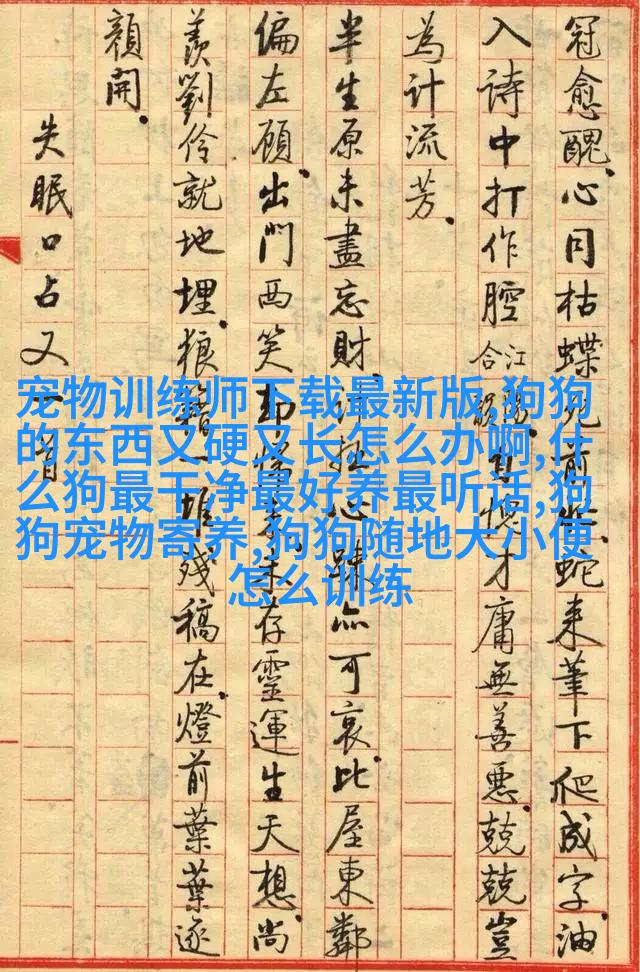 冠愈醜。心同枯蝶前蛇来筆下爬成字。油
入詩中打作腔合江愧才庸無善惡。兢兢豈
為計流芳。
半生原未盡忘財心疎亦可哀。比屋東鄰
偏左顧。出門西笑却存靈運生天想。尚
羨劉伶就地埋。狼藉一堆殘稿在。燈前葉葉逐
顏開。
失眠口占又一首
宠物训练师下载最新版,狗狗
的东西又硬又长怎么办啊,什
么狗最干净最好养最听话,狗
狗宠物寄养,狗狗随地大小便
怎么训练